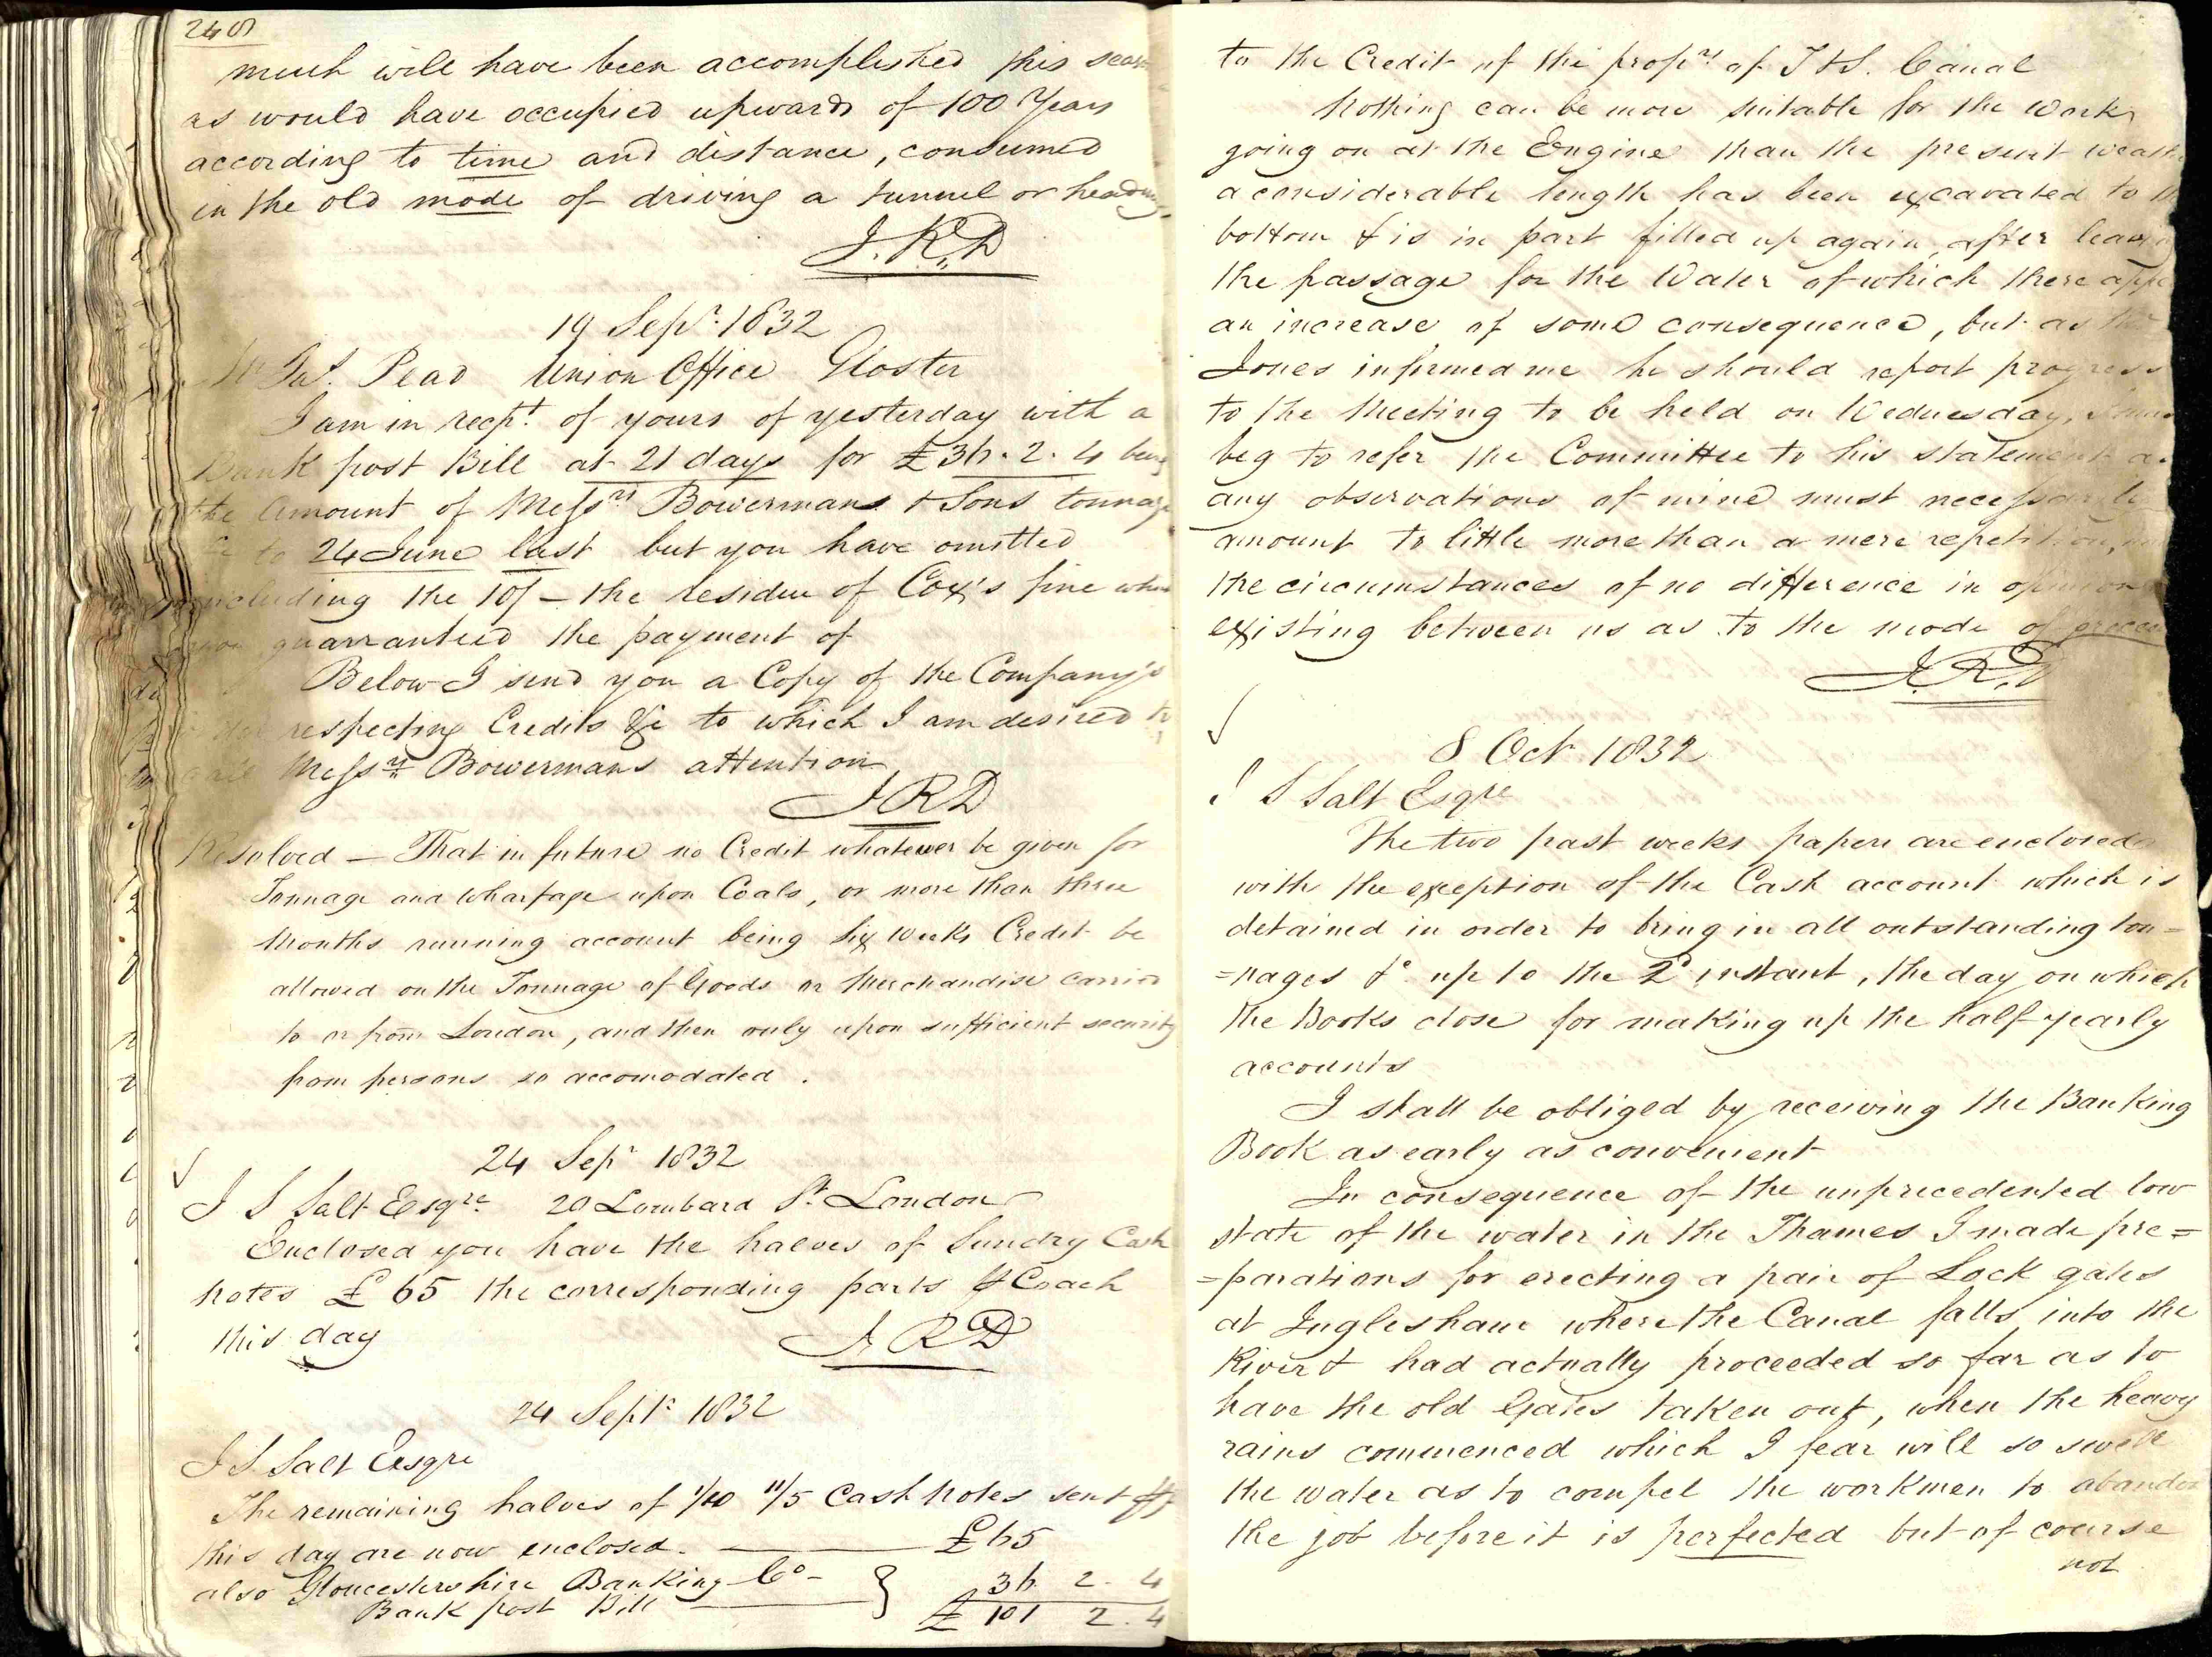 248
much will have been accomplished this
as would have occupied upwards of 100 Years
according to time and distance, consumed
in the old mode of driving a tunnel or heading
J.R.D
19 Sepr. 1832
Mr Jas. Pead Union Office Gloster
I am in recpt. of yours of yesterday with a
Bank post Bill at 21 days for £36.2.4 being
the Amount of Messrs Bowermans & Sons tonnage
to 24 June last but you have omitted
including the 10/- the residue of Cox's fine
you guarranteed the payment of
Below I send you a Copy of the Company's
respecting Credits &c to which I am desired to
call Messrs Bowermans attention
JRD
Resolved — That in future no Credit whatever be given for
Tonnage and Wharfage upon Coals, or more than three
Months running account being Six Weeks Credit be
allowed on the Tonnage of Goods or Merchandise carried
to or from London, and then only upon sufficient security
from persons so accomodated.
24 Sepr 1832
J S Salt Esqre. 20 Lombard St. London
Enclosed you have the halves of Sundry Cash
notes £65 the corresponding parts Coach
this day
JRD
24 Septr 1832
J S. Salt Esqre
The remaining halves of 1/10 11/5 Cash Notes sent
this day are now enclosed. — £65
also Gloucestershire Banking Co - } 36 2. 4
Bank post Bill — £101 2.4
to the Credit of the proprs of T & S. Canal
Nothing can be more suitable for the works
going on at the Engine than the present
a considerable length has been excavated to
bottom & is in part filled up again, after leaving
the passage for the Water of which there
an increase of some consequence, but as
Jones informed me he should report progress
to the Meeting to be held on Wednesday,
beg to refer the Committee to his statement
any observations of mine must necessarily
amount to little more than a mere repetition,
the circumstances of no difference in opinion
existing between us as to the mode of
J.R.D
8 Oct 1832
J S Salt Esqre
The two past weeks papers are enclosed
with the exception of the Cash account which is
detained in order to bring in all outstanding ton=
=nages &c. up to the 2d instant, the day on which
the Books close for making up the half yearly
accounts
I shall be obliged by receiving the Banking
Book as early as convenient
In consequence of the unprecedented low
state of the water in the Thames I made pre=
=parations for erecting a pair of Lock gates
at Inglesham where the Canal falls into the
River & had actually proceeded so far as to
have the old Gates taken out, when the heavy
rains commenced which I fear will so swell
the water as to compel the workmen to abandon
the job before it is perfected but of course
not